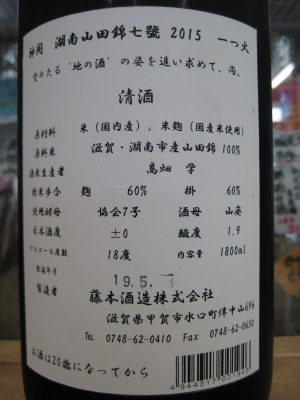 神開 湖南山田錦七號 2015 一つ火
堂々たる '地の酒' の姿を追い求めて、尚。
清酒
原材料 米(国内産)、米麹(国産米使用)
原料米 滋賀・湖南市産山田錦100%
酒米生産者 高畑 学
精米歩合 麹 60% 掛 60%
使用酵母 協会7号 酒母 山廃
日本酒度 ±0 酸度 1.9
アルコール度数 18度 内容量 1800ml
製造年月 19.5.
製造者 藤本酒造株式会社
滋賀県甲賀市水口町伴中山696
TEL 0748-62-0410 Fax 0748-62-0650
お酒は20歳になってから